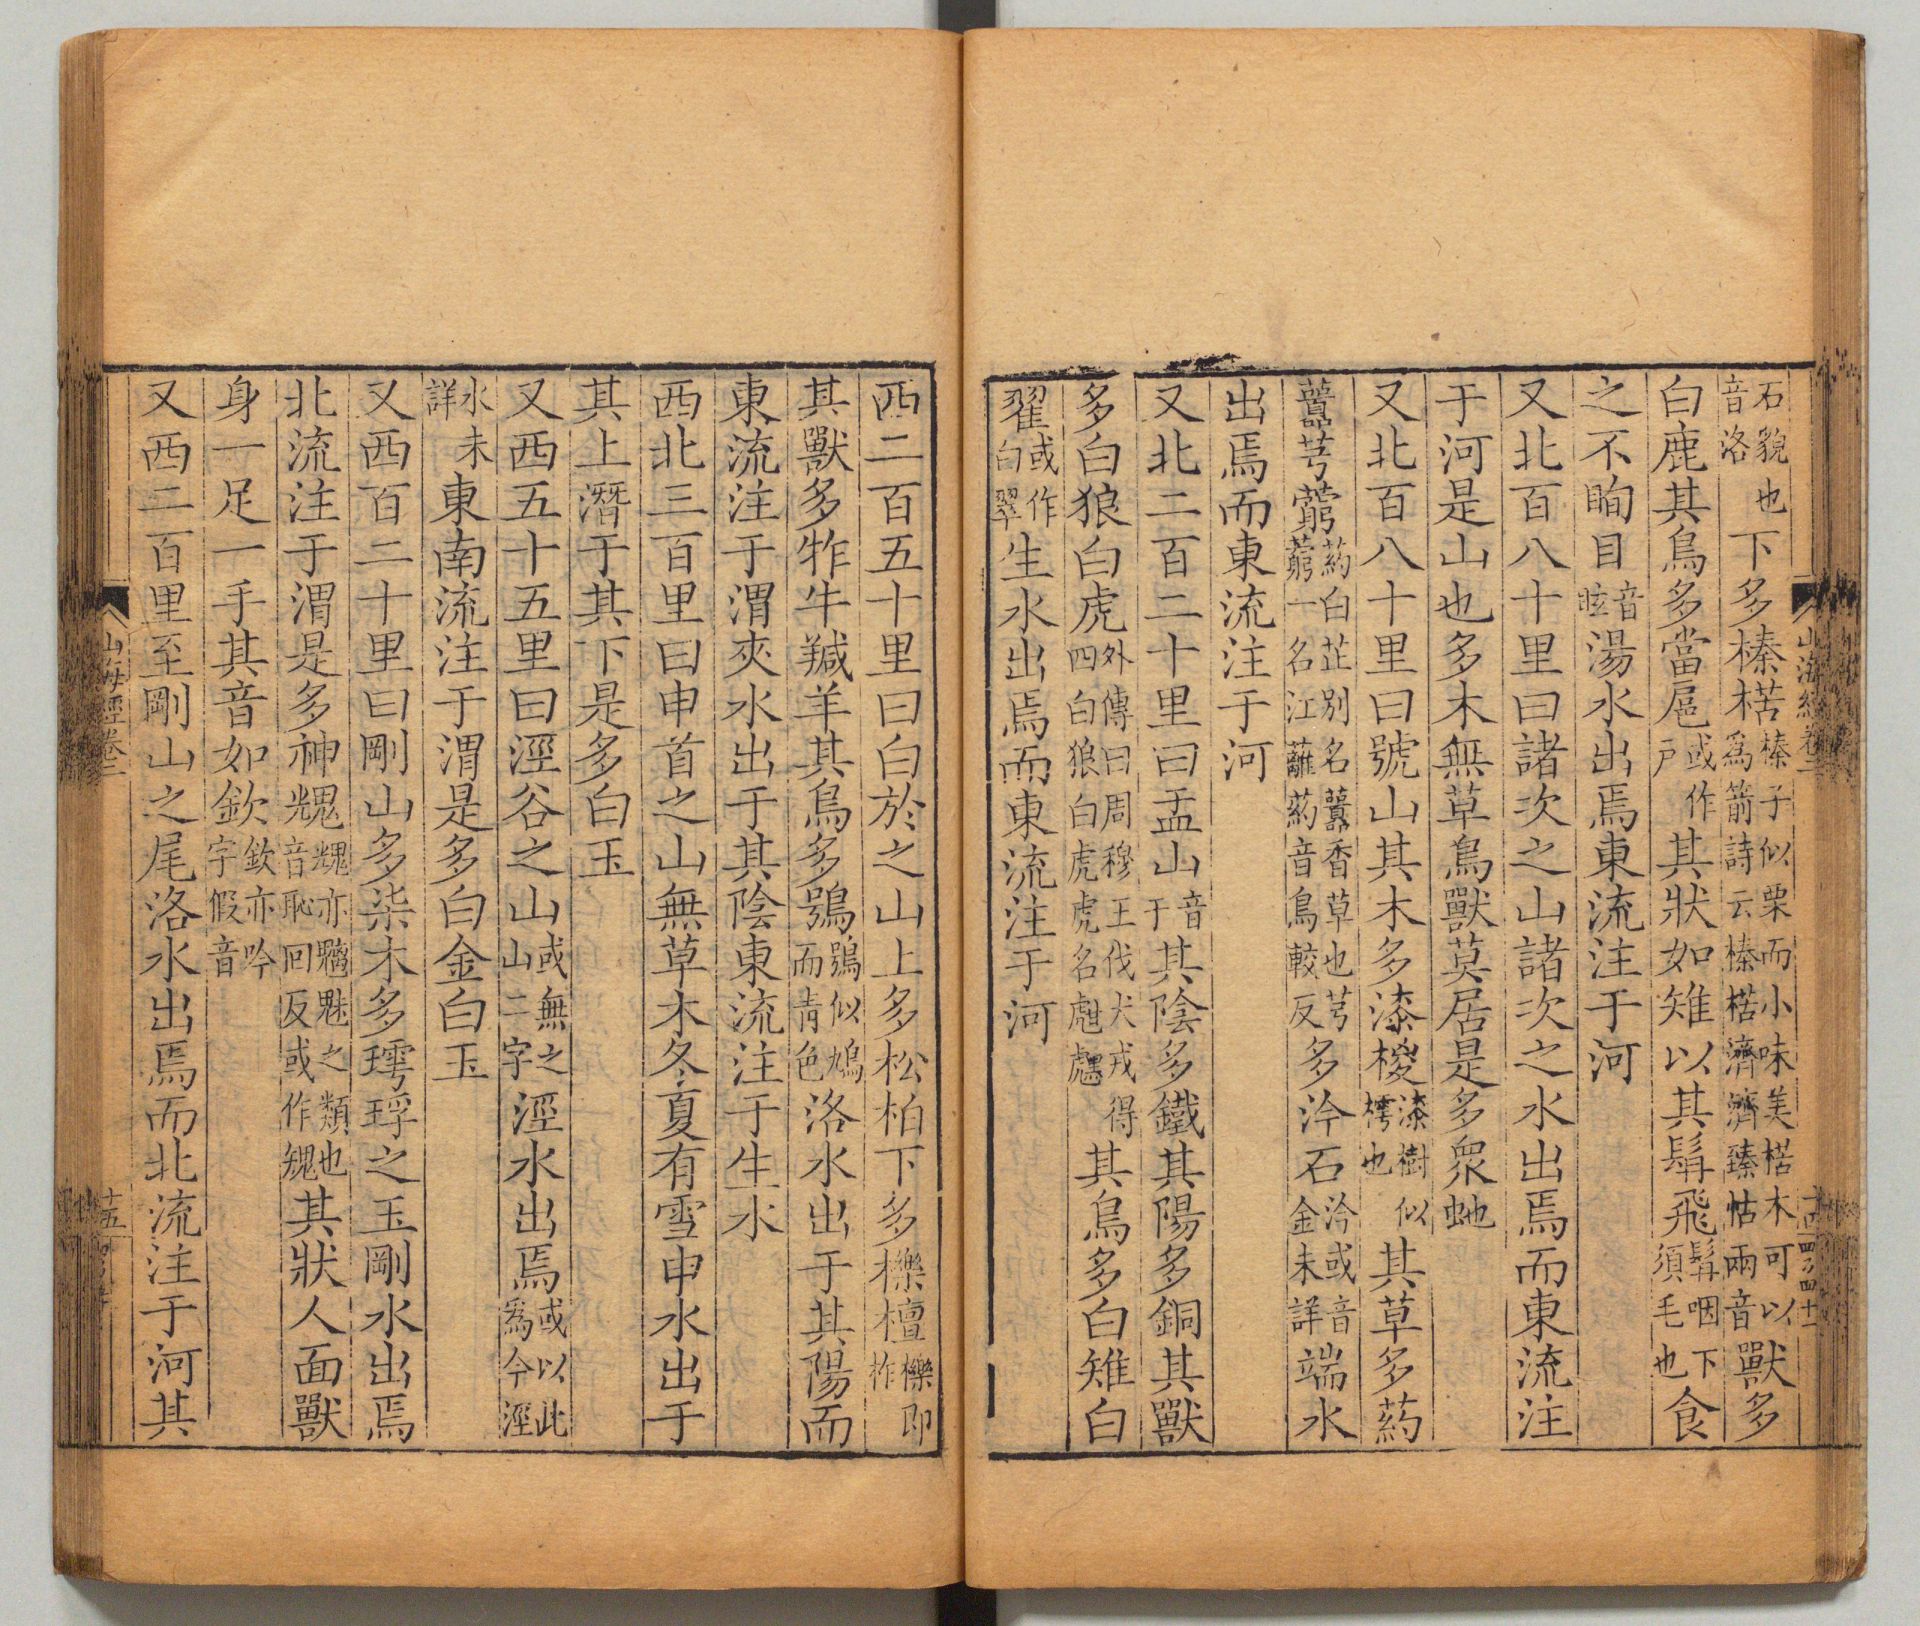 石貌也音洛下多榛楛榛子似栗而小味美楛木可以為箭詩云榛楛濟濟臻怙兩音獸多
白鹿其鳥多當扈或作戶其狀如雉以其髯飛髯咽下須毛也食
之不眴目音眩湯水出焉東流注于河
又北百八十里曰諸次之山諸次之水出焉而東流注
于河是山也多木無草鳥獸莫居是多衆虵
又北百八十里曰號山其木多漆椶漆樹似樗也其草多葯
虈芎藭葯白芷別名虈香草也芎藭一名江蘺葯音烏較反多汵石汵或音金未詳端水
出焉而東流注于河
又北二百二十里曰盂山音于其陰多鐵其陽多銅其獸
多白狼白虎外傳曰周穆王伐犬戎得四白狼白虎虎名甝䖘其鳥多白雉白
翟或作白翠生水出焉而東流注于河
西二百五十里曰白於之山上多松柏下多櫟檀櫟即柞
其獸多㸲牛羬羊其鳥多鴞鴞似鳩而青色洛水出于其陽而
東流注于渭夾水出于其陰東流注于生水
西北三百里曰申首之山無草木冬夏有雪申水出于
其上潛于其下是多白玉
又西五十五里曰涇谷之山或無之山二字涇水出焉或以此為今涇
水未詳東南流注于渭是多白金白玉
又西百二十里曰剛山多柒木多㻬琈之玉剛水出焉
北流注于渭是多神䰠䰠亦魑魅之類也音恥回反或作𩲡其狀人面獸
身一足一手其音如欽欽亦吟字假音
又西二百里至剛山之尾洛水出焉而北流注于河其
山海經卷二
十五